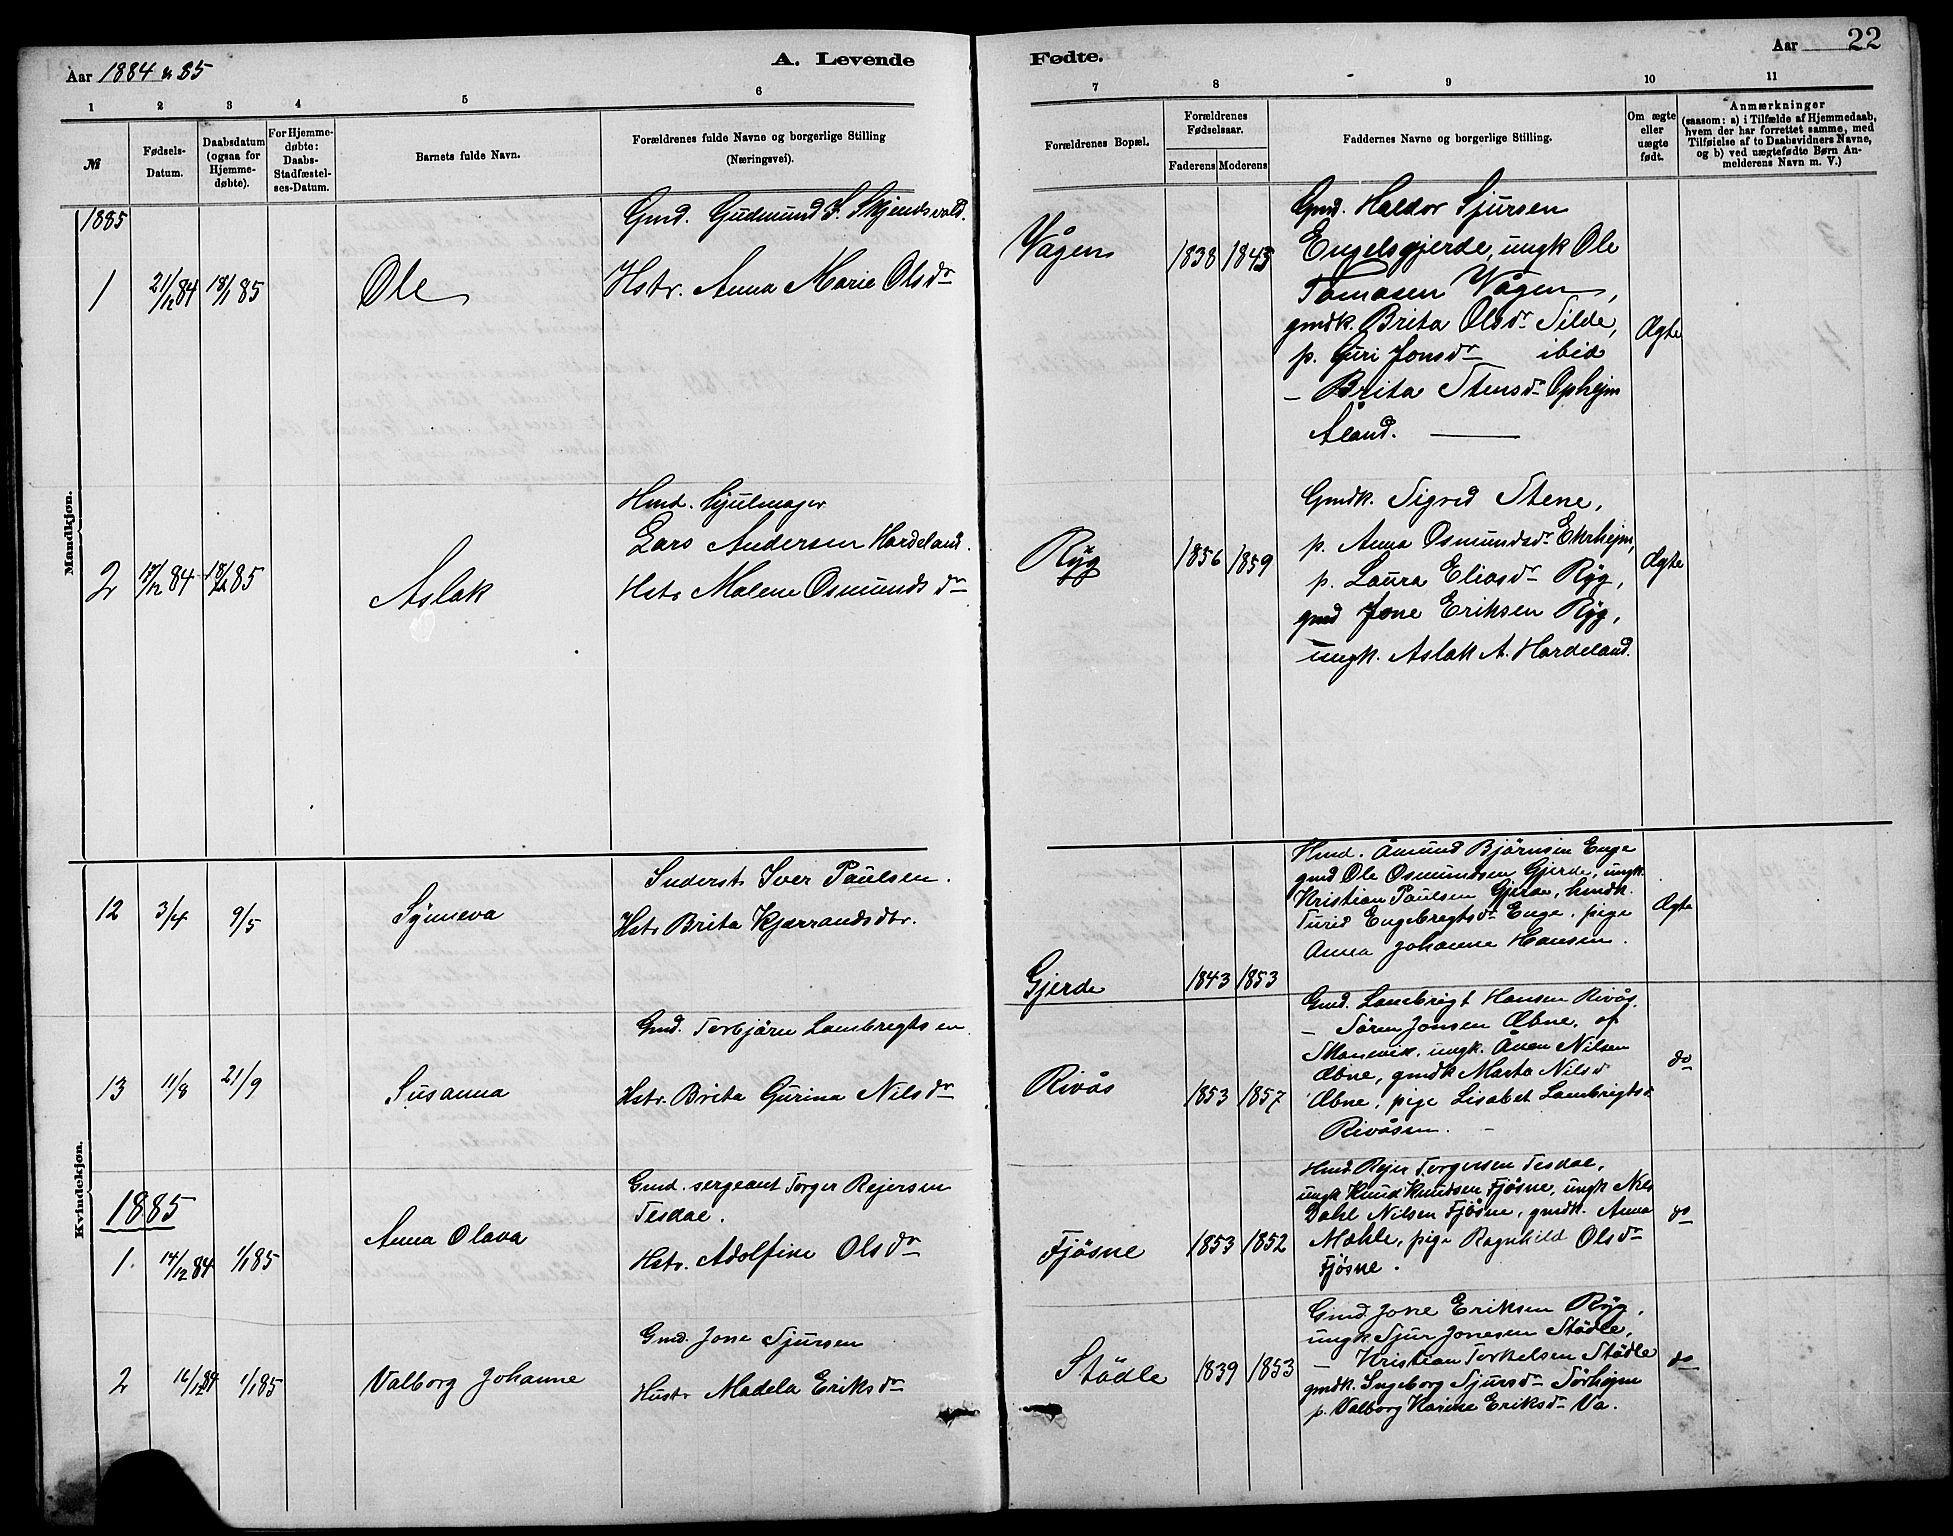 Aar 1884 & 85
A. Levende
Fødte.
Aar 22
1 2 3 4 5 6 7 8 8 9 10 11
№
Fødsels-
Datum.
Daabsdatum
(ogsaa for
Hjemme-
døbte).
For Hjemme-
døbte:
Daabs-
Stadfæstel-
ses-Datum.
Barnets fulde Navn.
Forældrenes fulde Navne og borgerlige Stilling
(Næringsvei).
Forældrenes Bopæl.
Forældrenes
Fødselsaar.
Faderens Moderens
Faddernes Navne og borgerlige Stilling.
Om ægte
eller
uægte
født.
Anmærkninger
(saasom: a) i Tilfælde af Hjemmedaab,
hvem der har forrettet samme, med
Tilføielse af to Daabsvidners Navne,
og b) ved uægtefødte Børn An-
melderens Navn m. V.)
Mandkjøn.
1885
1 21/12 84 18/1 85
Ole
Gmd. Gudmund S. Skjendsvold.
Hstr. Anna Marie Olsdr
Vågen
1838 1845
Gmd. Haldor Sjursen
Engelsgjerde, ungk Ole
Tomasen Vågen,
gmdk. Brita Olsdr Silde,
p. Guri Jonsdr ibid
– Brita Stensdr Ophejm
Åland.
Ægte
2 17/12 84 18/1 85
Aslak
Hmd. hjulmager
Lars Andersen Hardeland.
Hstr Malene Osmundsdr
Ryg
1856 1859
Gmdk. Sigrid Stene,
p. Anna Osmundsdr Ekrhejm,
p. Laura Eliasdr Ryg,
gmd Jone Eriksen Ryg,
ungk. Aslak A. Hardeland.
Ægte
Kvindekjøn.
12 3/4 9/5
Synneva
Inderst Iver Paulsen.
Hstr Brita Kjærrandsdtr.
Gjerde
1843 1853
Hmd. Åmund Bjørnsen Enge
gmd Ole Osmundsen Gjerde, ungk.
Kristian Paulsen Gjerde, hmdk.
Turid Engebregtsdr Enge, pige
Anna Johanne Hansen.
Ægte
13 11/8 21/9
Susanna
Gmd. Torbjörn Lambregtsen.
Hstr. Brita Gurina Nilsdr
Rivås
1853 1857
Gmd. Lambregt Hansen Rivås.
– Sören Jonsen Æbne, af
Skånevik, ungk. Ånen Nilsen
Æbne, gmdk Marta Nilsd
Æbne, pige Lisabet Lambregtsd
Rivåsen.
do
1885
1. 14/12 84 1/1 85
Anna Olava
Gmd. sergeant Torger Rejersen
Tesdal.
Hstr. Adolfine Olsdr
Fjøsne
1853 1852
Hmd Rejer Torgersen Tesdal,
ungk Knud Knudsen Fjøsne, ungk Nils
Dahl Nilsen Fjøsne, gmdk. Anna
Mæhle, pige Ragnhild Olsdr
Fjøsne.
do
2 16/12 84 1/1 85
Valborg Johanne
Gmd. Jone Sjursen
Hustr Madela Eriksdr
Stødle
1839 1853
Gmd Jone Eriksen Ryg,
ungk. Sjur Jonesen Stødle,
– Kristian Torkelsen Stødle
gmdk. Ingeborg Sjursdr Sørhejm
p. Valborg Karine Eriksdr Va.
do